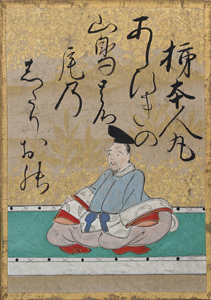 柿本人丸
あしひきの
山鳥の
尾乃
したりお能